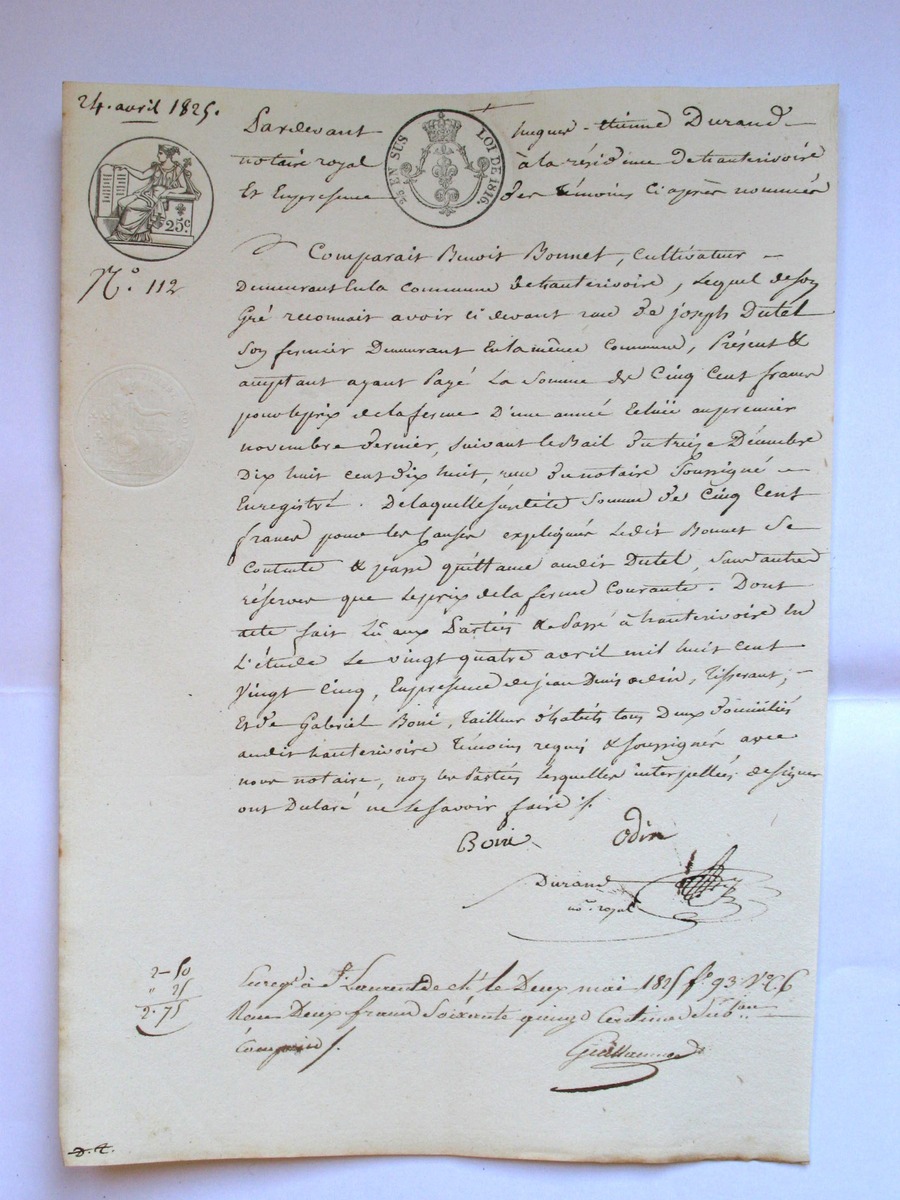 24. avril 1825.
Pardevant hugues-étienne Durand
notaire royal à la résidence de hauterivoire
Et En presence des témoins Ci après nommés
25 EN SUS LOI DE 1816.
25c
N.° 112
Comparait Benoit Bonnet, Cultivateur
Demeurant En la Commune de hauterivoire, Lequel de son
Gré reconnait avoir Ci devant reçu de joseph Dutel
Son fermier Demeurant En la même Commune, Présent &
acceptant ayant Payé La Somme de Cinq Cent francs
pour le prix de la ferme D'une année Echüe au premier
novembre dernier, Suivant le Bail du treize Décembre
Dix huit cent dix huit, reçu du notaire Soussigné
Enregistré. De laquelle susditte Somme de Cinq Cent
francs pour les Causes expliquées Ledit Bonnet Se
Contente & passe quittance audit Dutel, Sans autres
réserves que Le prix de la ferme Courante. Dont
acte fait Lû aux Parties & Passé à hauterivoire En
L'étude Le vingt quatre avril mil huit cent
Vingt Cinq, En presence de jean Denis odin, Tisserant,
Et de Gabriel Boni, Tailleur d'habits tous Deux domiciliés
audit hauterivoire Témoins requis & soussignés avec
nous notaire, non les Parties Lesquelles interpellées de signer
ont Declaré ne Le Savoir faire ./.
Boni Odin
Durand
no.re royal
2-50
" 25
2.75
Enreg.é à S.t Laurent de ch.t le Deux mai 1825 f.o 93 V.o C. 6
Recu Deux francs Soixante quinze Centimes Sub.on
Comprise ./.
Guillaumond
D.t.